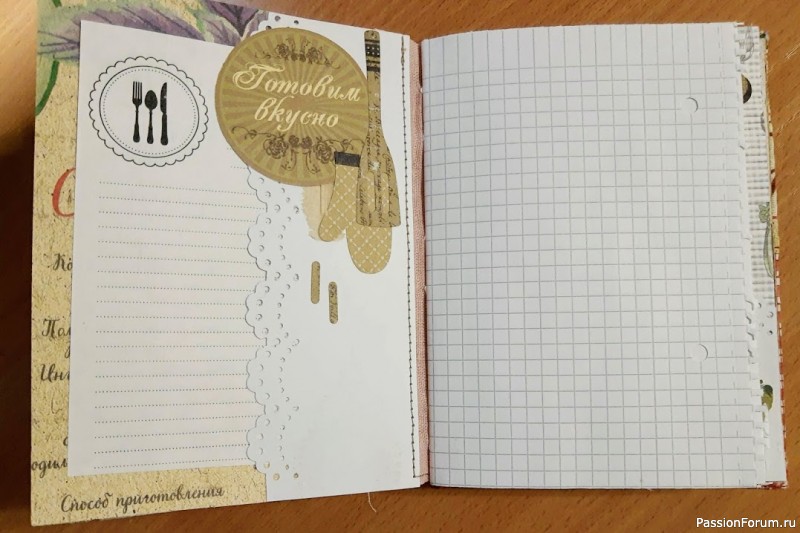 Готовим
вкусно
Способ приготовления
PassionForum.ru